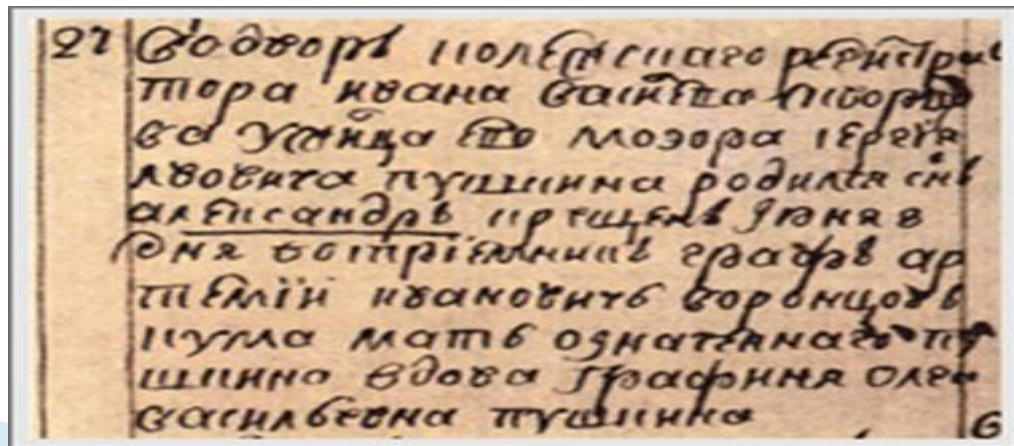 27 Водворѣ колежскаго регистра
тора ивана василева скворцо
ва ужилца ево моэора сергея
лвовича пушкина родился снъ
александръ крещенъ июня 8
дня восприемникъ графъ ар
темїи ивановичь воронцовъ
кума мать означеннаго пу
шкина вдова графиня олга
васильевна пушкина 6